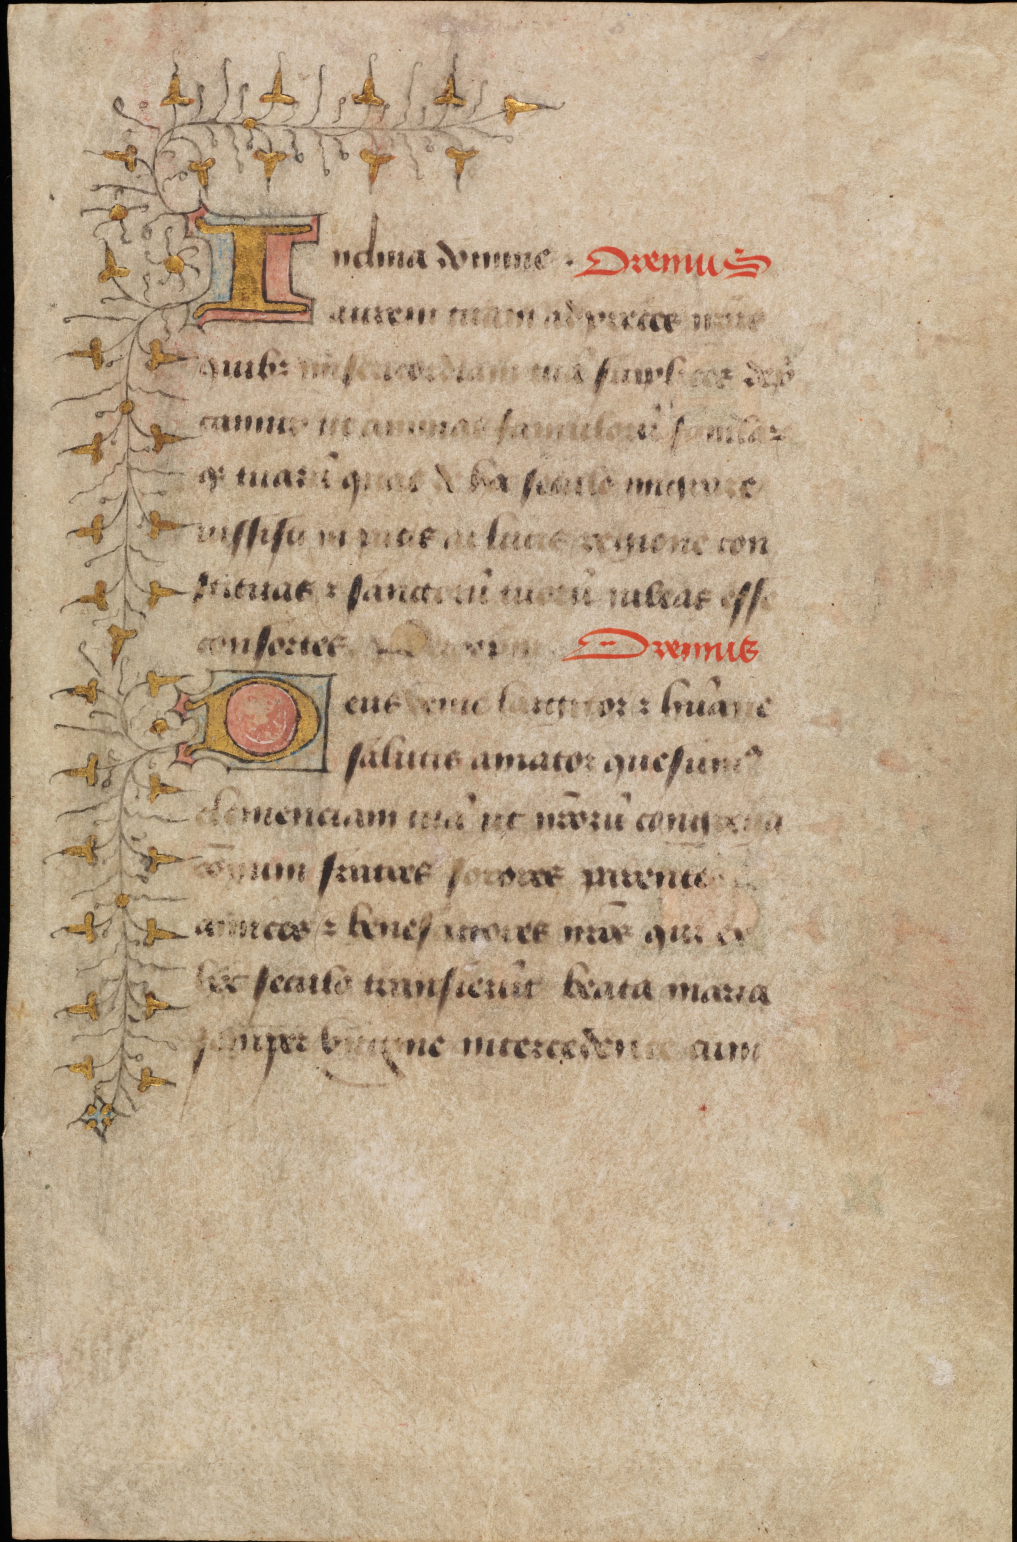 Inclina domine . Oremus
aurem tuam ad preces nr̄as
quibꝫ misericordiam tuā supplices dep̄
camur ut animas famulorū famula⁊
qꝫ tuarū quas de hoc seculo migrare
iussisti in pacis ac lucis regione con
stituas ⁊ sanctorū tuorū iubeas esse
consortes Oremus
Deus venie largitor ⁊ hūane
salutis amator quesumꝰ
clemenciam tuā ut nr̄orū congrega
cōnum fratres sorores parentes
amicos ⁊ benefactores nr̄os qui ex
hoc seculo transierūt beata maria
semper virgine intercedente cum